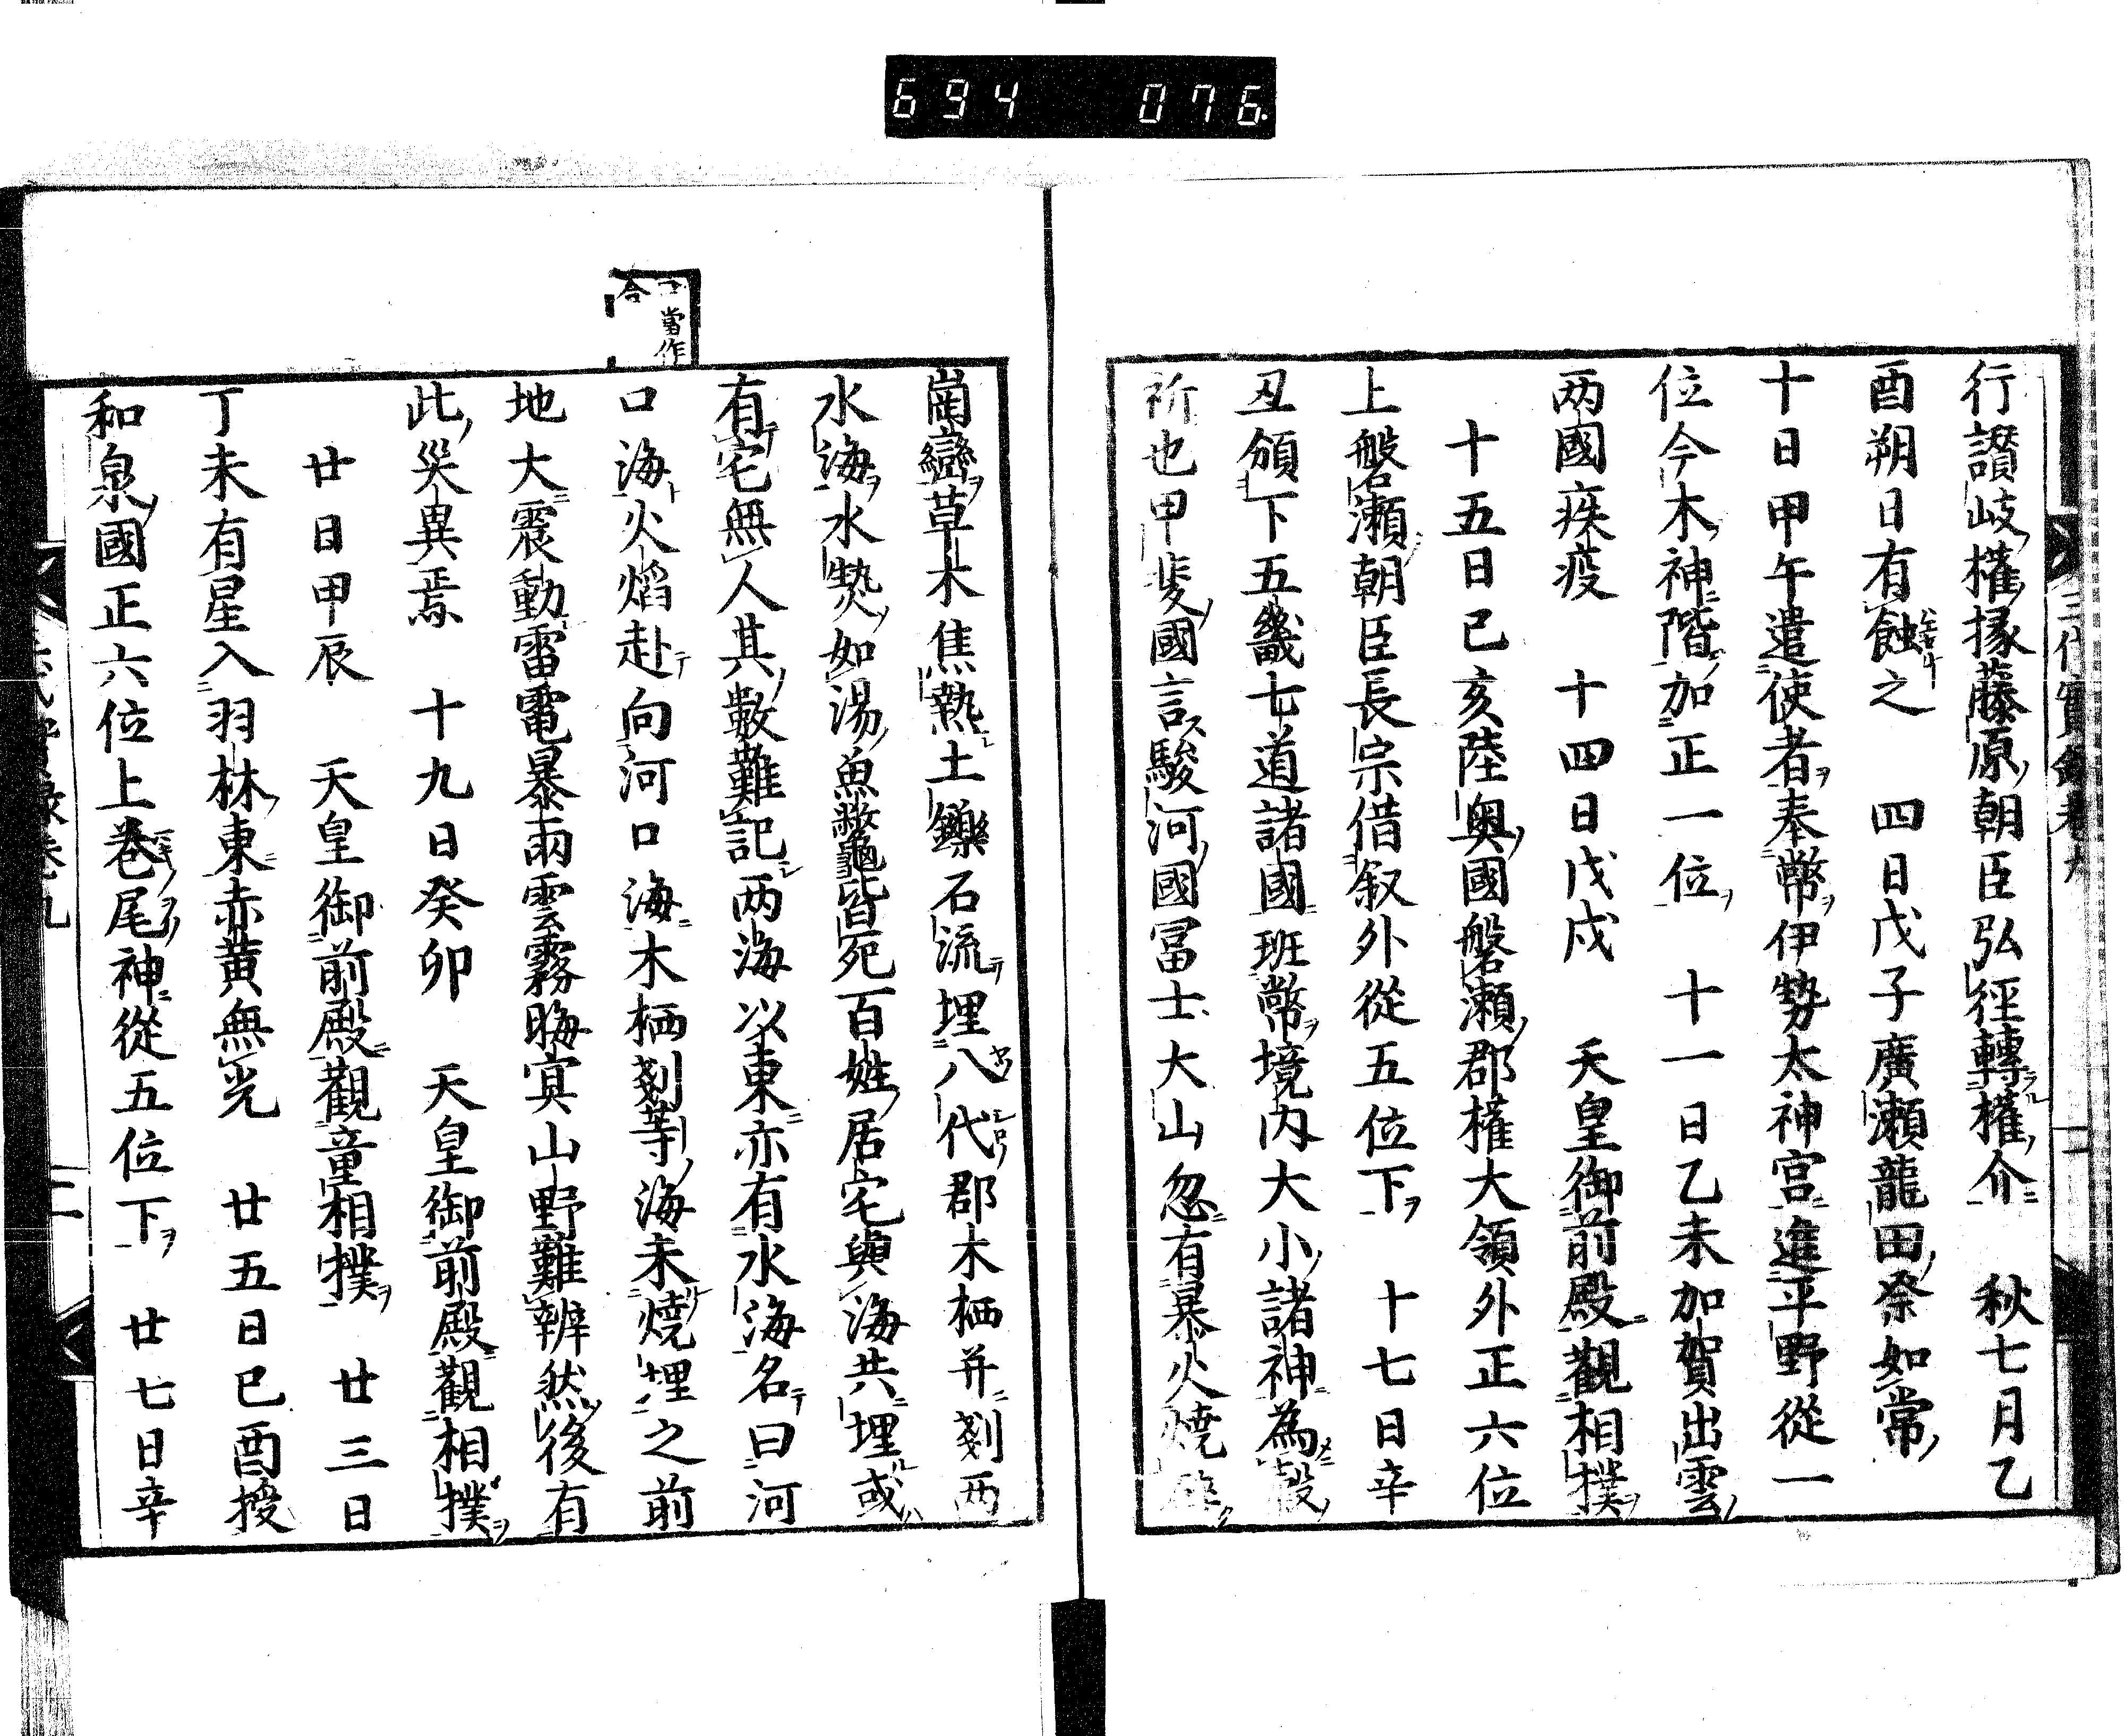 694 076.
行讃岐權掾藤原朝臣弘徑轉權介　秋七月乙
酉朔日有蝕之　四日戊子廣瀬龍田祭如常
十日甲午遣使者奉幣伊勢太神宮進平野從一
位今木神階加正一位　十一日乙未加賀出雲
两國疾疫　十四日戊戌　天皇御前殿觀相撲
十五日已亥陸奥國磐瀬郡權大領外正六位
上磐瀬朝臣長宗借叙外從五位下　十七日辛
丑頒下五畿七道諸國班幣境内大小諸神為穀
祈也甲斐國言駿河國冨士大山忽有暴火燒碎
崗巒草木焦熱土鑠石流埋八代郡木栖并剗两
水海水㷱如湯魚鼈龜皆死百姓居宅與海共埋或
有宅無人其數難記两海以東亦有水海名曰河
口海火焔赴向河口海木栖剗等海未燒埋之前
地大震動雷電暴雨雲霧晦冥山野難辨然後有
此災異焉　十九日癸卯　天皇御前殿觀相撲
廿日甲辰　天皇御前殿觀童相撲　廿三日
丁未有星入羽林東赤黄無光　廿五日已酉授
和泉國正六位上巻尾神從五位下　廿七日辛
當作
合